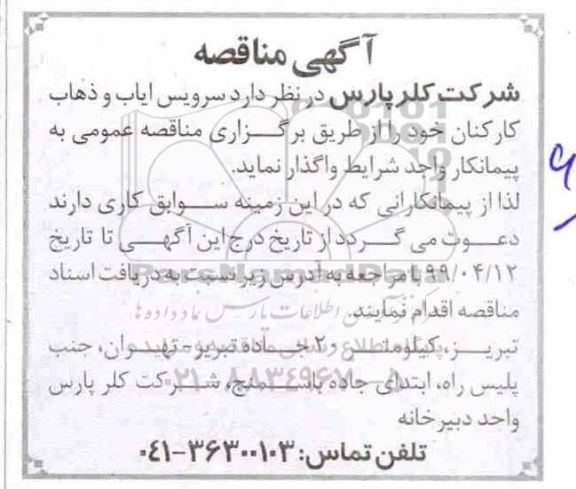 آگهی مناقصه
شرکت کلر پارس در نظر دارد سرویس ایاب و ذهاب
کارکنان خود را از طریق برگزاری مناقصه عمومی به
پیمانکار واجد شرایط واگذار نماید.
لذا از پیمانکارانی که در این زمینه سوابق کاری دارند
دعوت می گردد از تاریخ درج این آگهی تا تاریخ
۹۹/۰۴/۱۲ با مراجعه به آدرس زیر نسبت به دریافت اسناد
مناقصه اقدام نمایند.
تبریز، کیلومتر ۲۰ جاده تبریز- تهران، جنب
پلیس راه، ابتدای جاده باسمنج، شرکت کلر پارس
واحد دبیرخانه
تلفن تماس: ۳۶۳۰۰۱۰۳-۰۴۱
ParsNamadData
۰۲۱-۸۸۳۴۹۶۷۰-۵